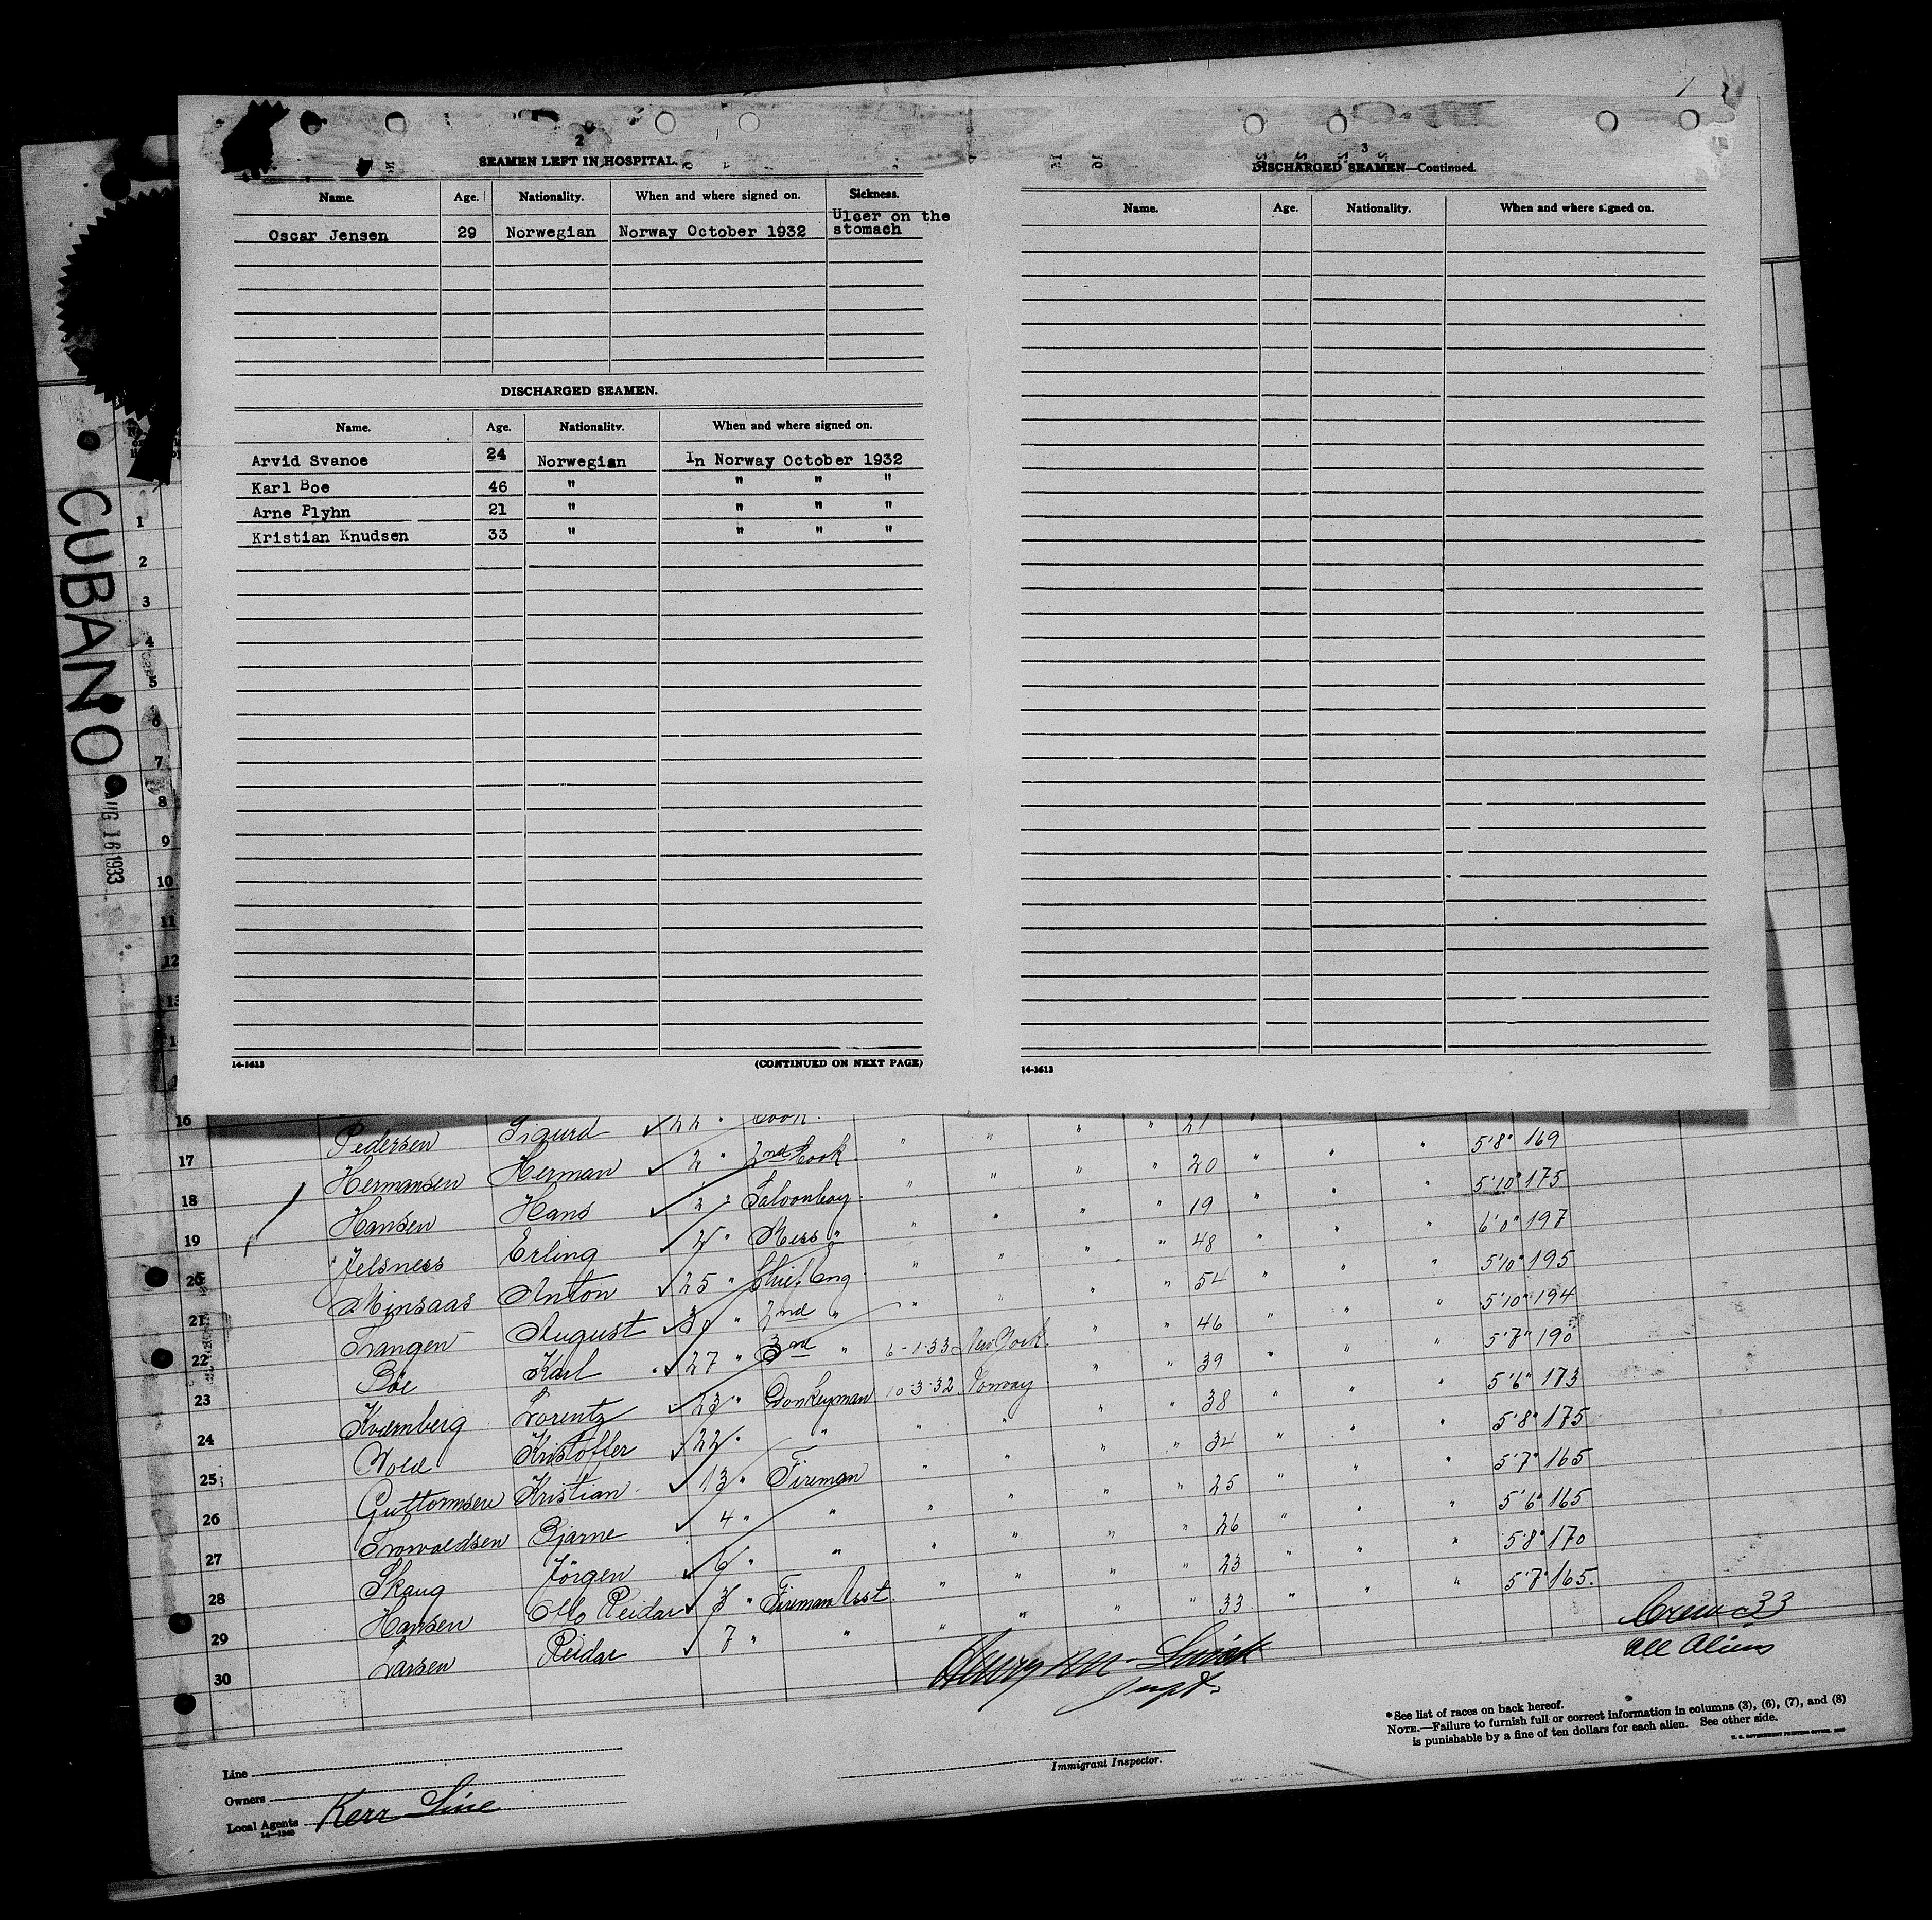 2
SEAMEN LEFT IN HOSPITAL.
Name. Age. Nationality. When and where signed on. Sickness.
Oscar Jensen 29 Norwegian Norway October 1932 Ulcer on the stomach
DISCHARGED SEAMEN.
Name. Age. Nationality. When and where signed on.
Arvid Svanoe 24 Norwegian In Norway October 1932
Karl Boe 46 " " " "
Arne Plyhn 21 " " " "
Kristian Knudsen 33 " " " "
14-1613 (CONTINUED ON NEXT PAGE)
3
DISCHARGED SEAMEN—Continued.
Name. Age. Nationality. When and where signed on.
14-1613
CUBANO
AUG 16 1933
1
2
3
4
5
6
7
8
9
10
11
12
13
16 Pedersen Sigurd 22 " Cook " " " " 21 " " " 5'8" 169
17 Hermansen Herman 2 " 2nd Cook " " " " 20 " " " 5'10" 175
18 Hansen Hans 2 " Saloonboy " " " " 19 " " " 6'0" 197
19 Jelsness Erling " Mess " " " " " 48 " " " 5'10" 195
20 Minsaas Anton 25 " Chief Eng " " " " 54 " " " 5'10" 194
21 Langen August " 2nd " " " " " 46 " " " 5'7" 190
22 Boe Karl 27 " 3rd " 6-1-33 New York " " 39 " " " 5'6" 173
23 Kvernberg Lorentz 23 " Donkeyman 10-3-32 Norway " " 38 " " " 5'8" 175
24 Wold Kristoffer 22 " " " " " " 34 " " " 5'7" 165
25 Guttormsen Kristian 13 " Fireman " " " " 25 " " " 5'6" 165
26 Bjarne 4 " " " " " " 26 " " " 5'8" 170
27 Skaug Jörgen 6 " " " " " " 23 " " " 5'7" 165.
28 Hansen Otto Reidar 3 " Fireman Asst. " " " " 33 " " "
29 Larsen Reidar 7 " "
30
Crew 33
All Aliens
*See list of races on back hereof.
NOTE.—Failure to furnish full or correct information in columns (3), (6), (7), and (8)
is punishable by a fine of ten dollars for each alien. See other side.
U. S. GOVERNMENT PRINTING OFFICE
Line
Owners
Local Agents Kerr Line
14-1240
Immigrant Inspector.